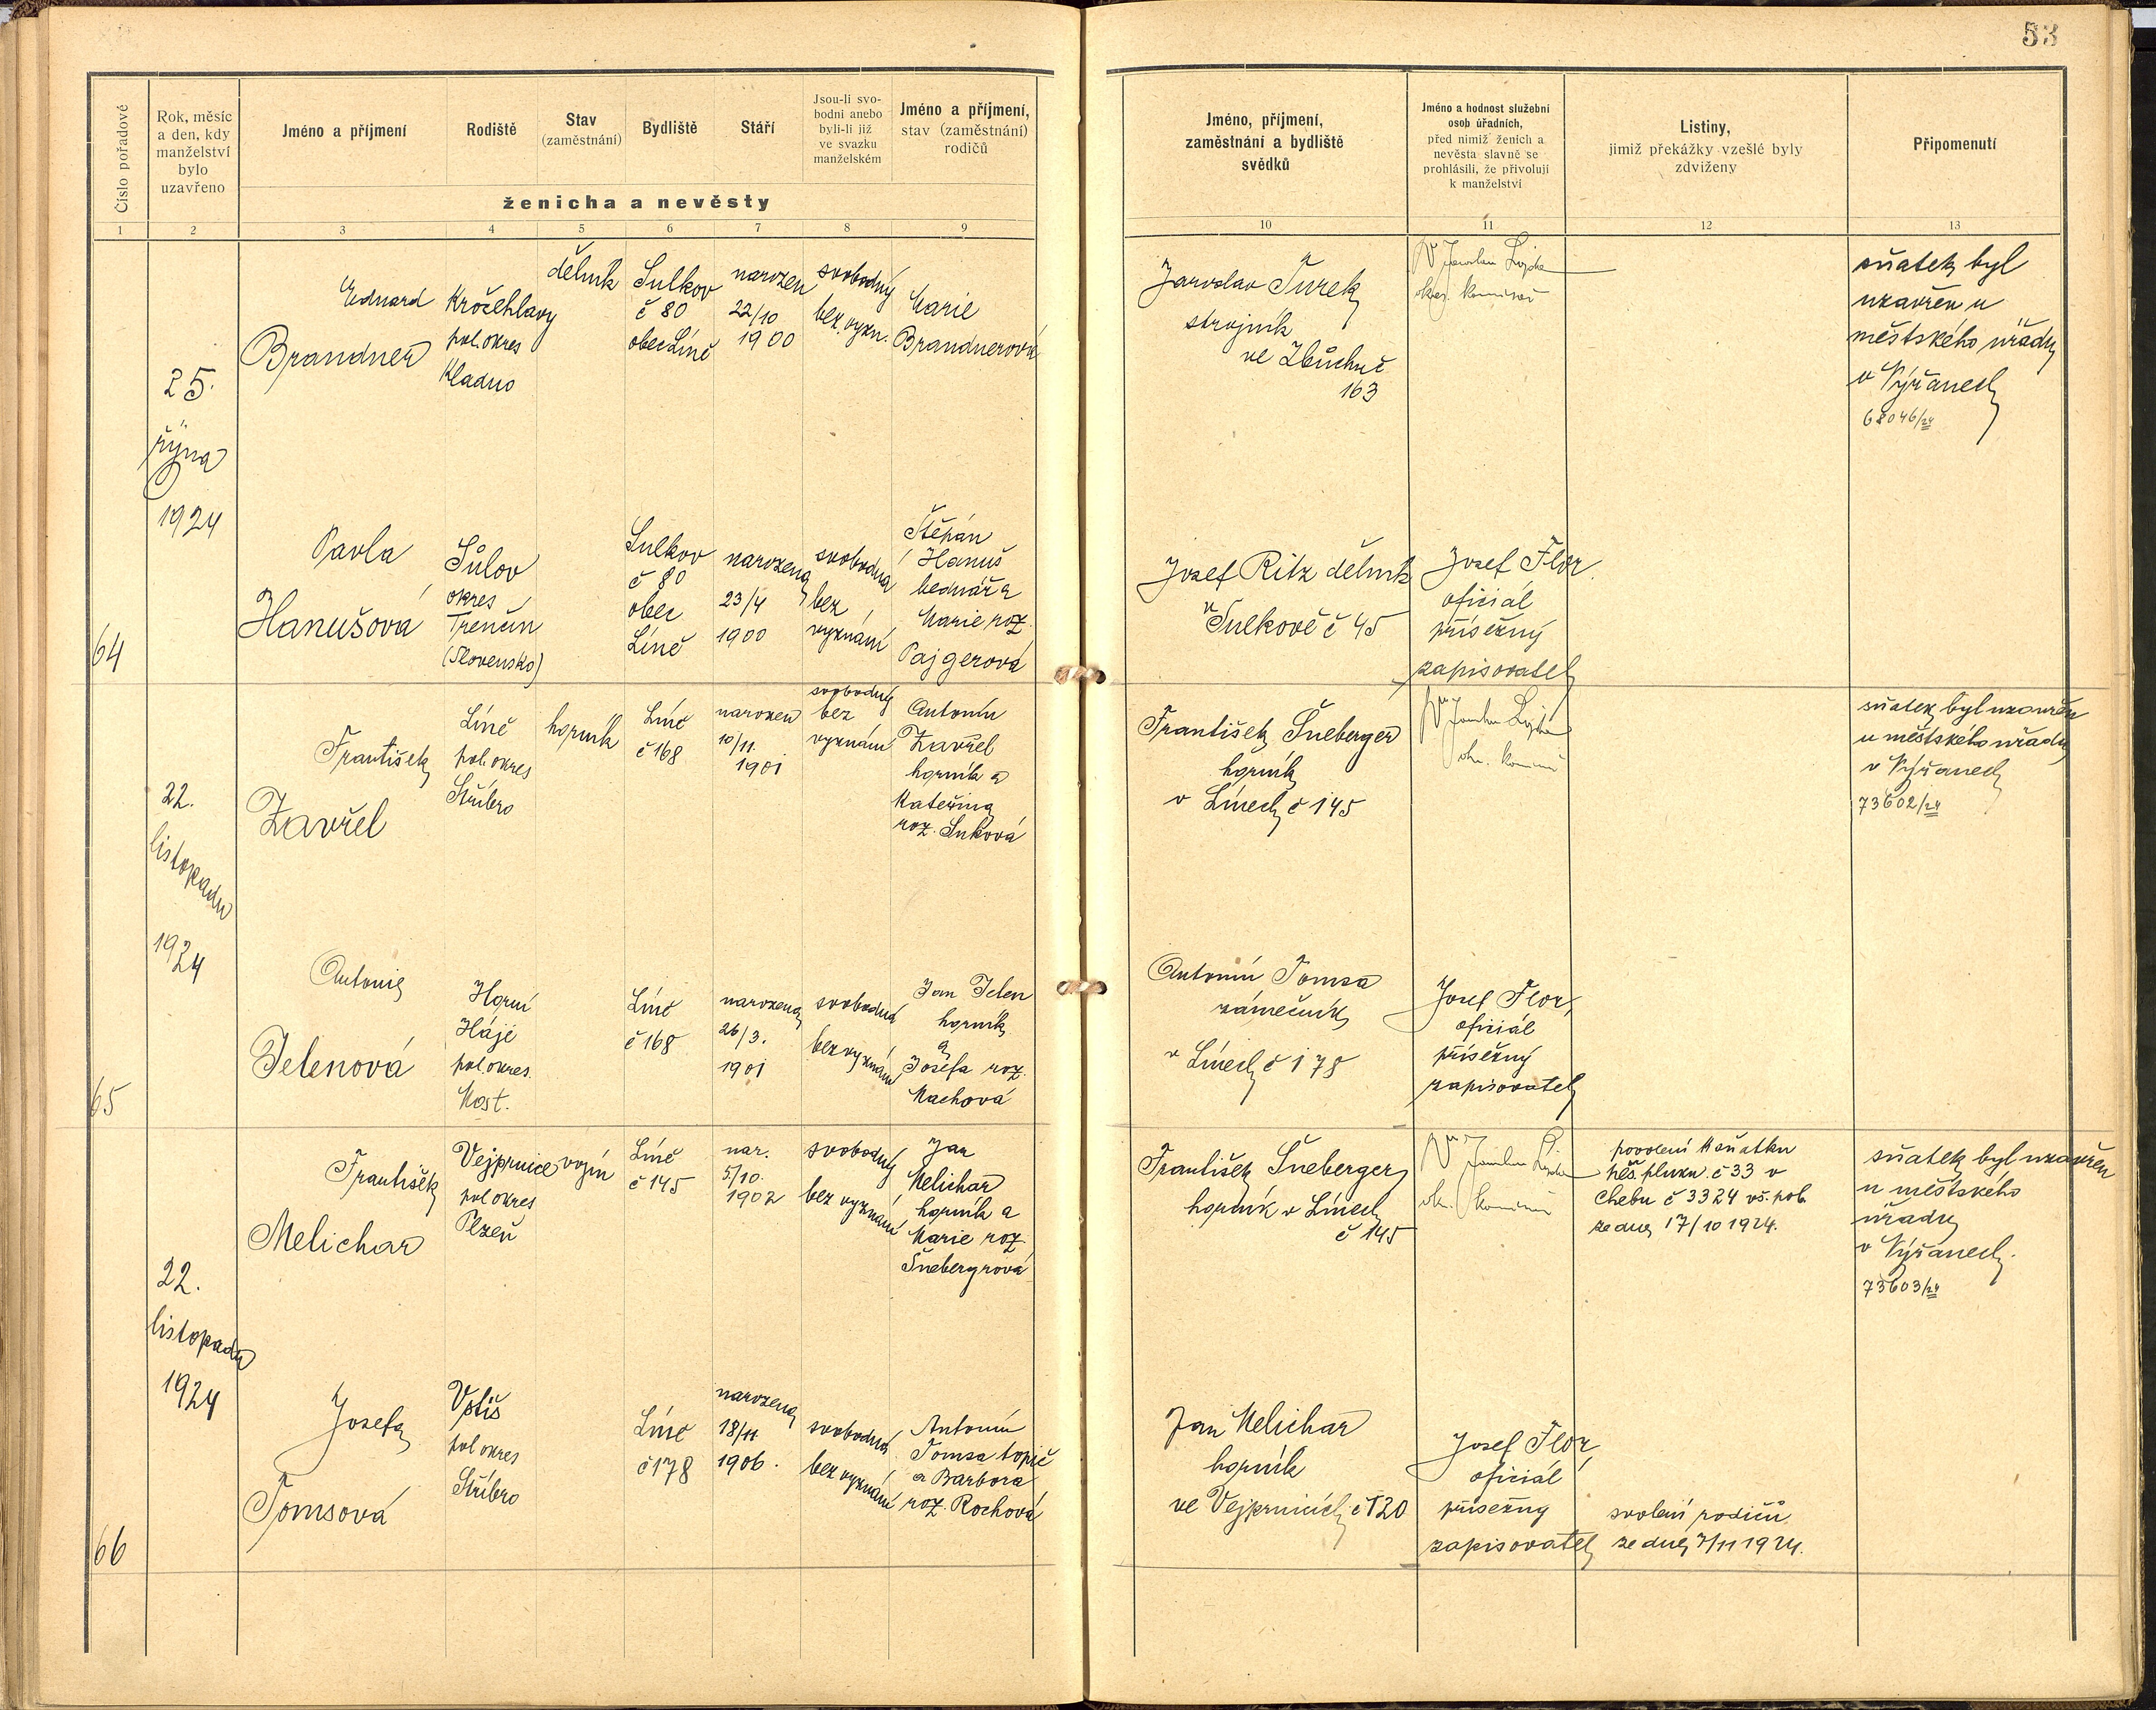 53
Číslo pořadové
Rok, měsíc
a den, kdy
manželství
bylo
uzavřeno
Jméno a příjmení
Rodiště
Stav
(zaměstnání)
Bydliště
Stáří
Jsou-li svo-
bodni anebo
byli-li již
ve svazku
manželském
Jméno a příjmení,
stav (zaměstnání)
rodičů
ženicha a nevěsty
Jméno, příjmení,
zaměstnání a bydliště
svědků
Jméno a hodnost služební
osob úřadních,
před nimiž ženich a
nevěsta slavně se
prohlásili, že přivolují
k manželství
Listiny,
jimiž překážky vzešlé byly
zdviženy
Připomenutí
1 2 3 4 5 6 7 8 9 10 11 12 13
64
25.
října
1924
Eduard
Brandner
Kročehlavy
pol. okres
Kladno
dělník
Sulkov
č 80
obec Líně
narozen
22/10
1900
svobodný
bez vyzn.
Marie
Brandnerová
Jaroslav Turek
strojník
ve Zbůchně
163
Dr Jaroslav
okres. komisař
sňatek byl
uzavřen u
městského úřadu
v Nýřanech
68046/24
Pavla
Hanušová
Súlov
okres
Trenčín
(Slovensko)
Sulkov
č 80
obec
Líně
narozena
23/4
1900
svobodna
bez
vyznání
Štěpán
Hanuš
bednář a
Marie roz.
Pajgerová
Josef Ritz dělník
v Sulkově č 45
Josef Flor
oficiál
přísežný
zapisovatel
65
22.
listopadu
1924
František
Zavřel
Líně
pol. okres
Stříbro
horník
Líně
č 168
narozen
10/11.
1901
svobodný
bez
vyznání
Antonín
Zavřel
horník a
Kateřina
roz. Suková
František Šneberger
horník
v Línech č 145
sňatek byl uzavřen
u městského úřadu
v Nýřanech
73602/24
Antonie
Jelenová
Horní
Háje
pol. okres.
Most.
Líně
č 168
narozena
26/3.
1901
svobodná
bez vyznání
Jan Jelen
horník
a
Josefa roz.
Machová
Antonín Tomsa
zámečník
v Línech č 178
Josef Flor,
oficiál
přísežný
zapisovatel
66
22.
listopadu
1924
František
Melichar
Vejprnice
pol okres
Plzeň
vojín
Líně
č 145
nar.
5/10.
1902
svobodný
bez vyznání
Jan
Melichar
horník a
Marie roz
Šnebergrová
František Šneberger
horník v Línech
č 145
povolení k sňatku
pěš. pluku č 33 v
Chebu č 3324 vš. pob.
ze dne 17/10 1924.
sňatek byl uzavřen
u městského
úřadu
v Nýřanech.
73603/24
Josefa
Tomsová
pol okres
Stříbro
Líně
č 178
narozena
18/11
1906.
svobodná
bez vyznání
Antonín
Tomsa topič
a Barbora
roz. Rochová
Jan Melichar
horník
ve Vejprnicích č 120
Josef Flor,
oficiál
přísežny
zapisovatel
svolení rodičů
ze dne 7/11 1924.